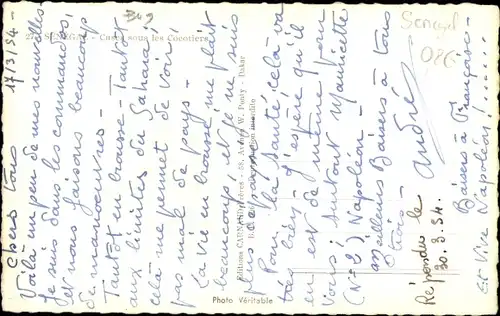 SÉNÉGAL - Cases sous les Cocotiers
Senegal
086
17/3/54.
Chers tous
Voilà un peu de mes nouvelles
Je suis dans les commandos
et nous faisons beaucoup
de manœuvres -
Tantôt en brousse - Tantôt
aux limites du Sahara
celà me permet de voir
pas mal de pays -
La vie en brousse me plait
beaucoup, et je ne suis
Pour la santé, celà va
très bien, j'espère qu'il
en est de même pour
vous, surtout Mauricette
(N=2), Napoléon -
Meilleurs Baisers à tous
trois -
André
Répondu le
30.3.54.
Baisers à Françoise -
et Vive Napoléon !.....
Photo Véritable